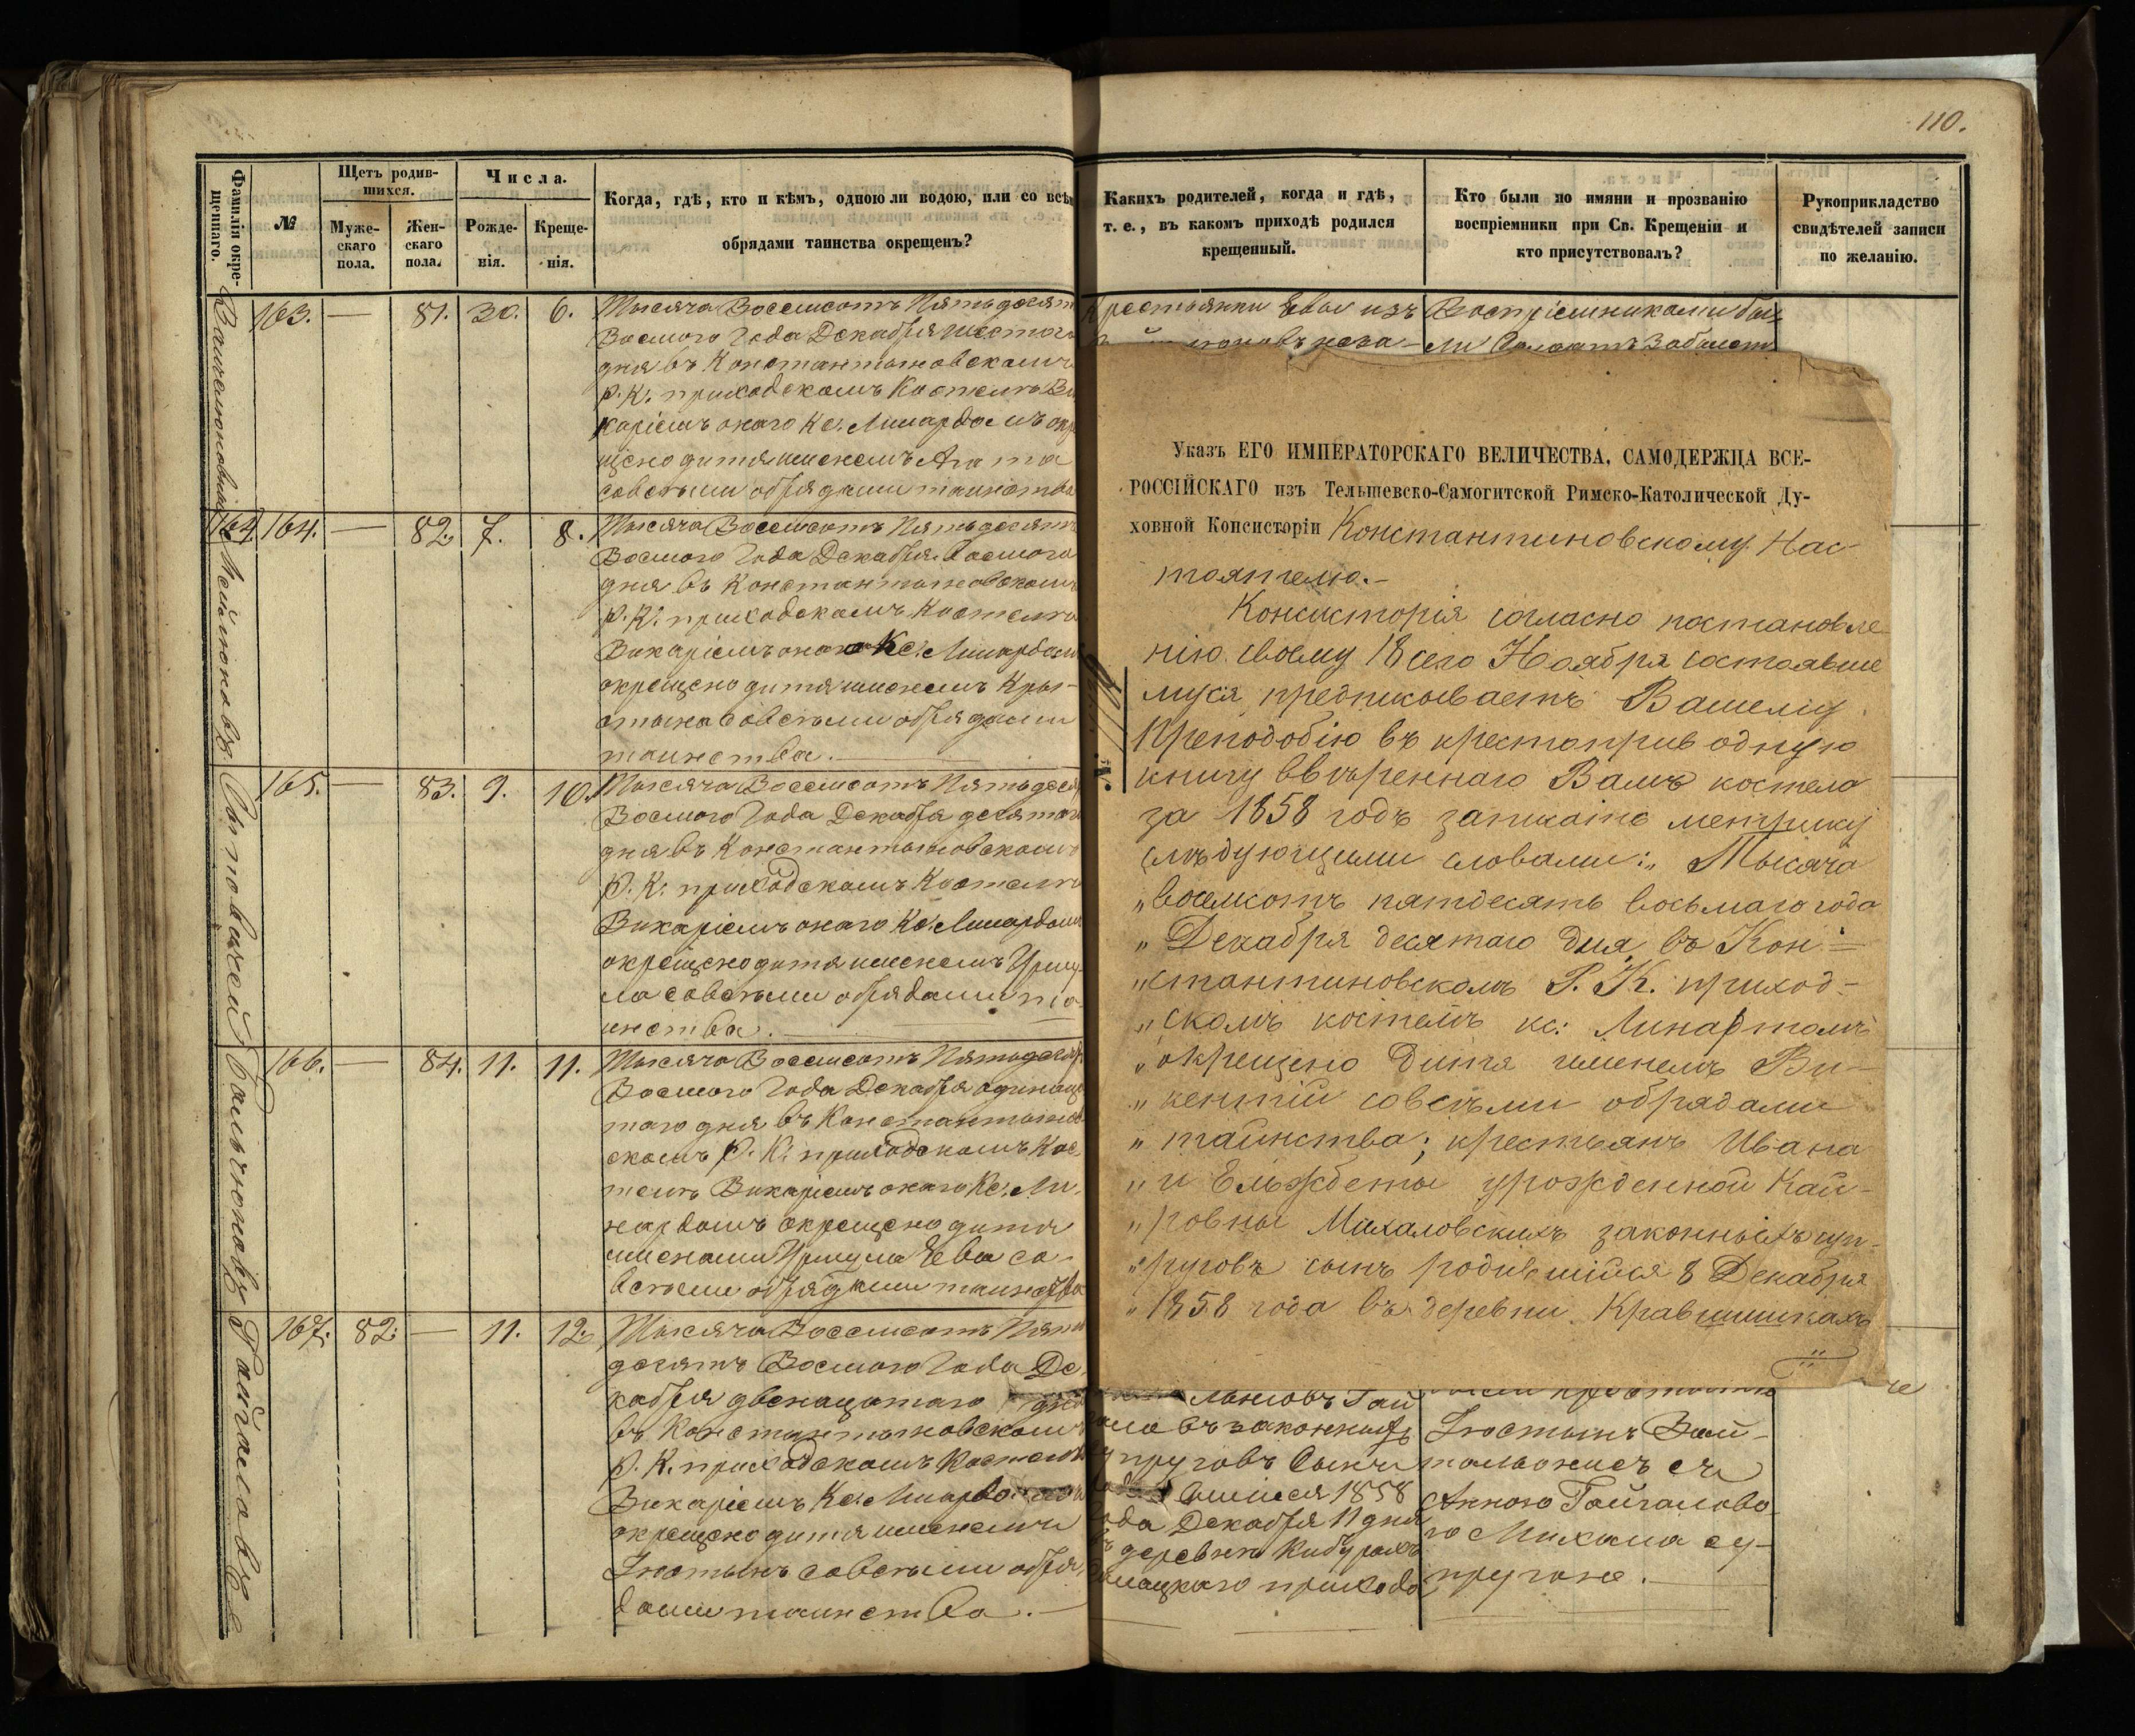 110.
Фамилія окре-
щеннаго.
№
Щетъ родив-
шихся.
Муже-
скаго
пола.
Жен-
скаго
пола.
Числа.
Рожде-
нія.
Креще-
нія.
Когда, гдѣ, кто и кѣмъ, одною ли водою, или со всѣ
обрядами таинства окрещенъ?
163. — 81. 30. 6.
Тысяча Восемсотъ Пятьдесят
Восмого Года Декабря шестого
дня въ Константыновскомъ
Р. К. приходскомъ Костелѣ Ви
каріемъ онаго Кс. Линардомъ окре
щено дитя именемъ Агата
совсѣми обрядами таинства
164 164. — 82. 7. 8.
Тысяча Восемсотъ Пятьдесятъ
Восмого Года Декабря Восмого
дня въ Константыновскомъ
Р. К. приходскомъ Костелѣ
Викаріемъ онаго Кс. Линардомъ
окрещено дитя именемъ Кры-
стына совсѣми обрядами
таинства. —
165. — 83. 9. 10.
Тысяча Восемсотъ Пятьдеся
Восмого Года Декабря десятого
дня въ Константыновскомъ
Р. К. приходскомъ Костелѣ
Викаріемъ онаго Кс. Линардомъ
окрещено дитя именемъ Уршу-
ла совсѣми обрядами та-
инства. —
166. — 84. 11. 11.
Тысяча Восемсотъ Пятьдеся
Восмого Года Декабря одинаца
того дня въ Константынов
скомъ Р. К. приходскомъ Кос
телѣ Викаріемъ онаго Кс. Ли-
нардомъ окрещено дитя
именами Уршула Ева со-
всѣми обрядами таинства
167. 82. — 11. 12.
Тысяча Восемсотъ Пять
десятъ Восмого Года Де
кабря двенацатого дня
въ Константыновскомъ
Р. К. приходскомъ Костелѣ
Викаріемъ Кс. Линардо
окрещено дитя именемъ
Юстынъ совсѣми обря
дами таинства. —
Какихъ родителей, когда и гдѣ,
т. е., въ какомъ приходѣ родился
крещенный.
Кто были по имяни и прозванію
воспріемники при Св. Крещеніи и
кто присутствовалъ?
Рукоприкладство
свидѣтелей записи
по желанію.
Крестьянки Евы изъ
Воспріемниками бы
ли
Указъ ЕГО ИМПЕРАТОРСКАГО ВЕЛИЧЕСТВА, САМОДЕРЖЦА ВСЕ-
РОССІЙСКАГО изъ Тельшевско-Самогитской Римско-Католической Ду-
ховной Консисторіи Константиновскому Нас-
тоятелю.-
Консисторія согласно постановле-
нію своему 18 сего Ноября состоявше
муся, предписываетъ Вашему
Преподобію въ крестоприводную
книгу ввѣреннаго Вамъ костела
за 1858 годъ записать метрику
слѣдующими словами: „Тысяча
„восемсотъ пятдесятъ восьмаго года
„Декабря десятаго дня, въ Кон=
„стантиновскомъ Р. К. приход-
„скомъ костелѣ кс: Линартомъ
„окрещено дитя именемъ Ви-
„кентій совсѣми обрядами
„таинства; крестьянъ Ивана
„и Ельжбеты урожденной Кай-
„ровны Михаловскихъ законныхъ суп-
„руговъ сынъ родившійся 8 Декабря
„1858 года въ деревни Кравшишкахъ
законныхъ
супруговъ Сынъ
вшійся 1858
года Декабря 11 дня
деревнѣ Кибурахъ
прихода
Юстынъ Вай-
съ
Анною Гойчалово-
ю Михала су-
пругою. —